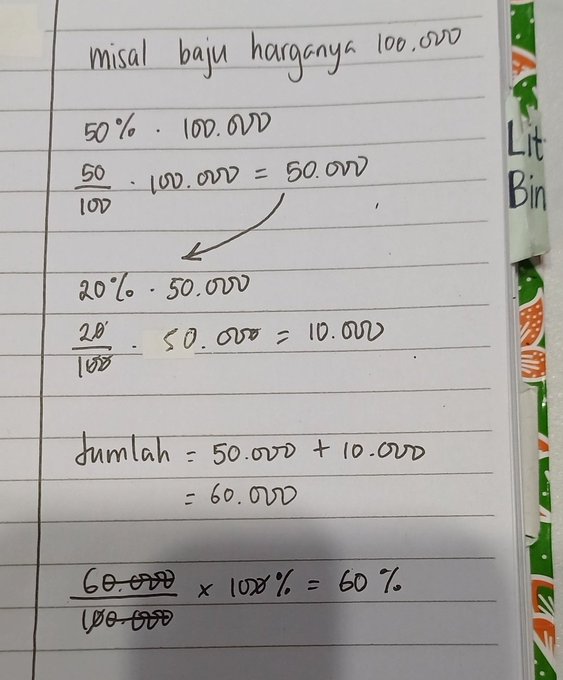 misal baju harganya 100.000
50% . 100.000
50/100 . 100.000 = 50.000
20% . 50.000
20/100 . 50.000 = 10.000
Jumlah = 50.000 + 10.000
= 60.000
60.000/100.000 x 100% = 60%
Lit
Bin